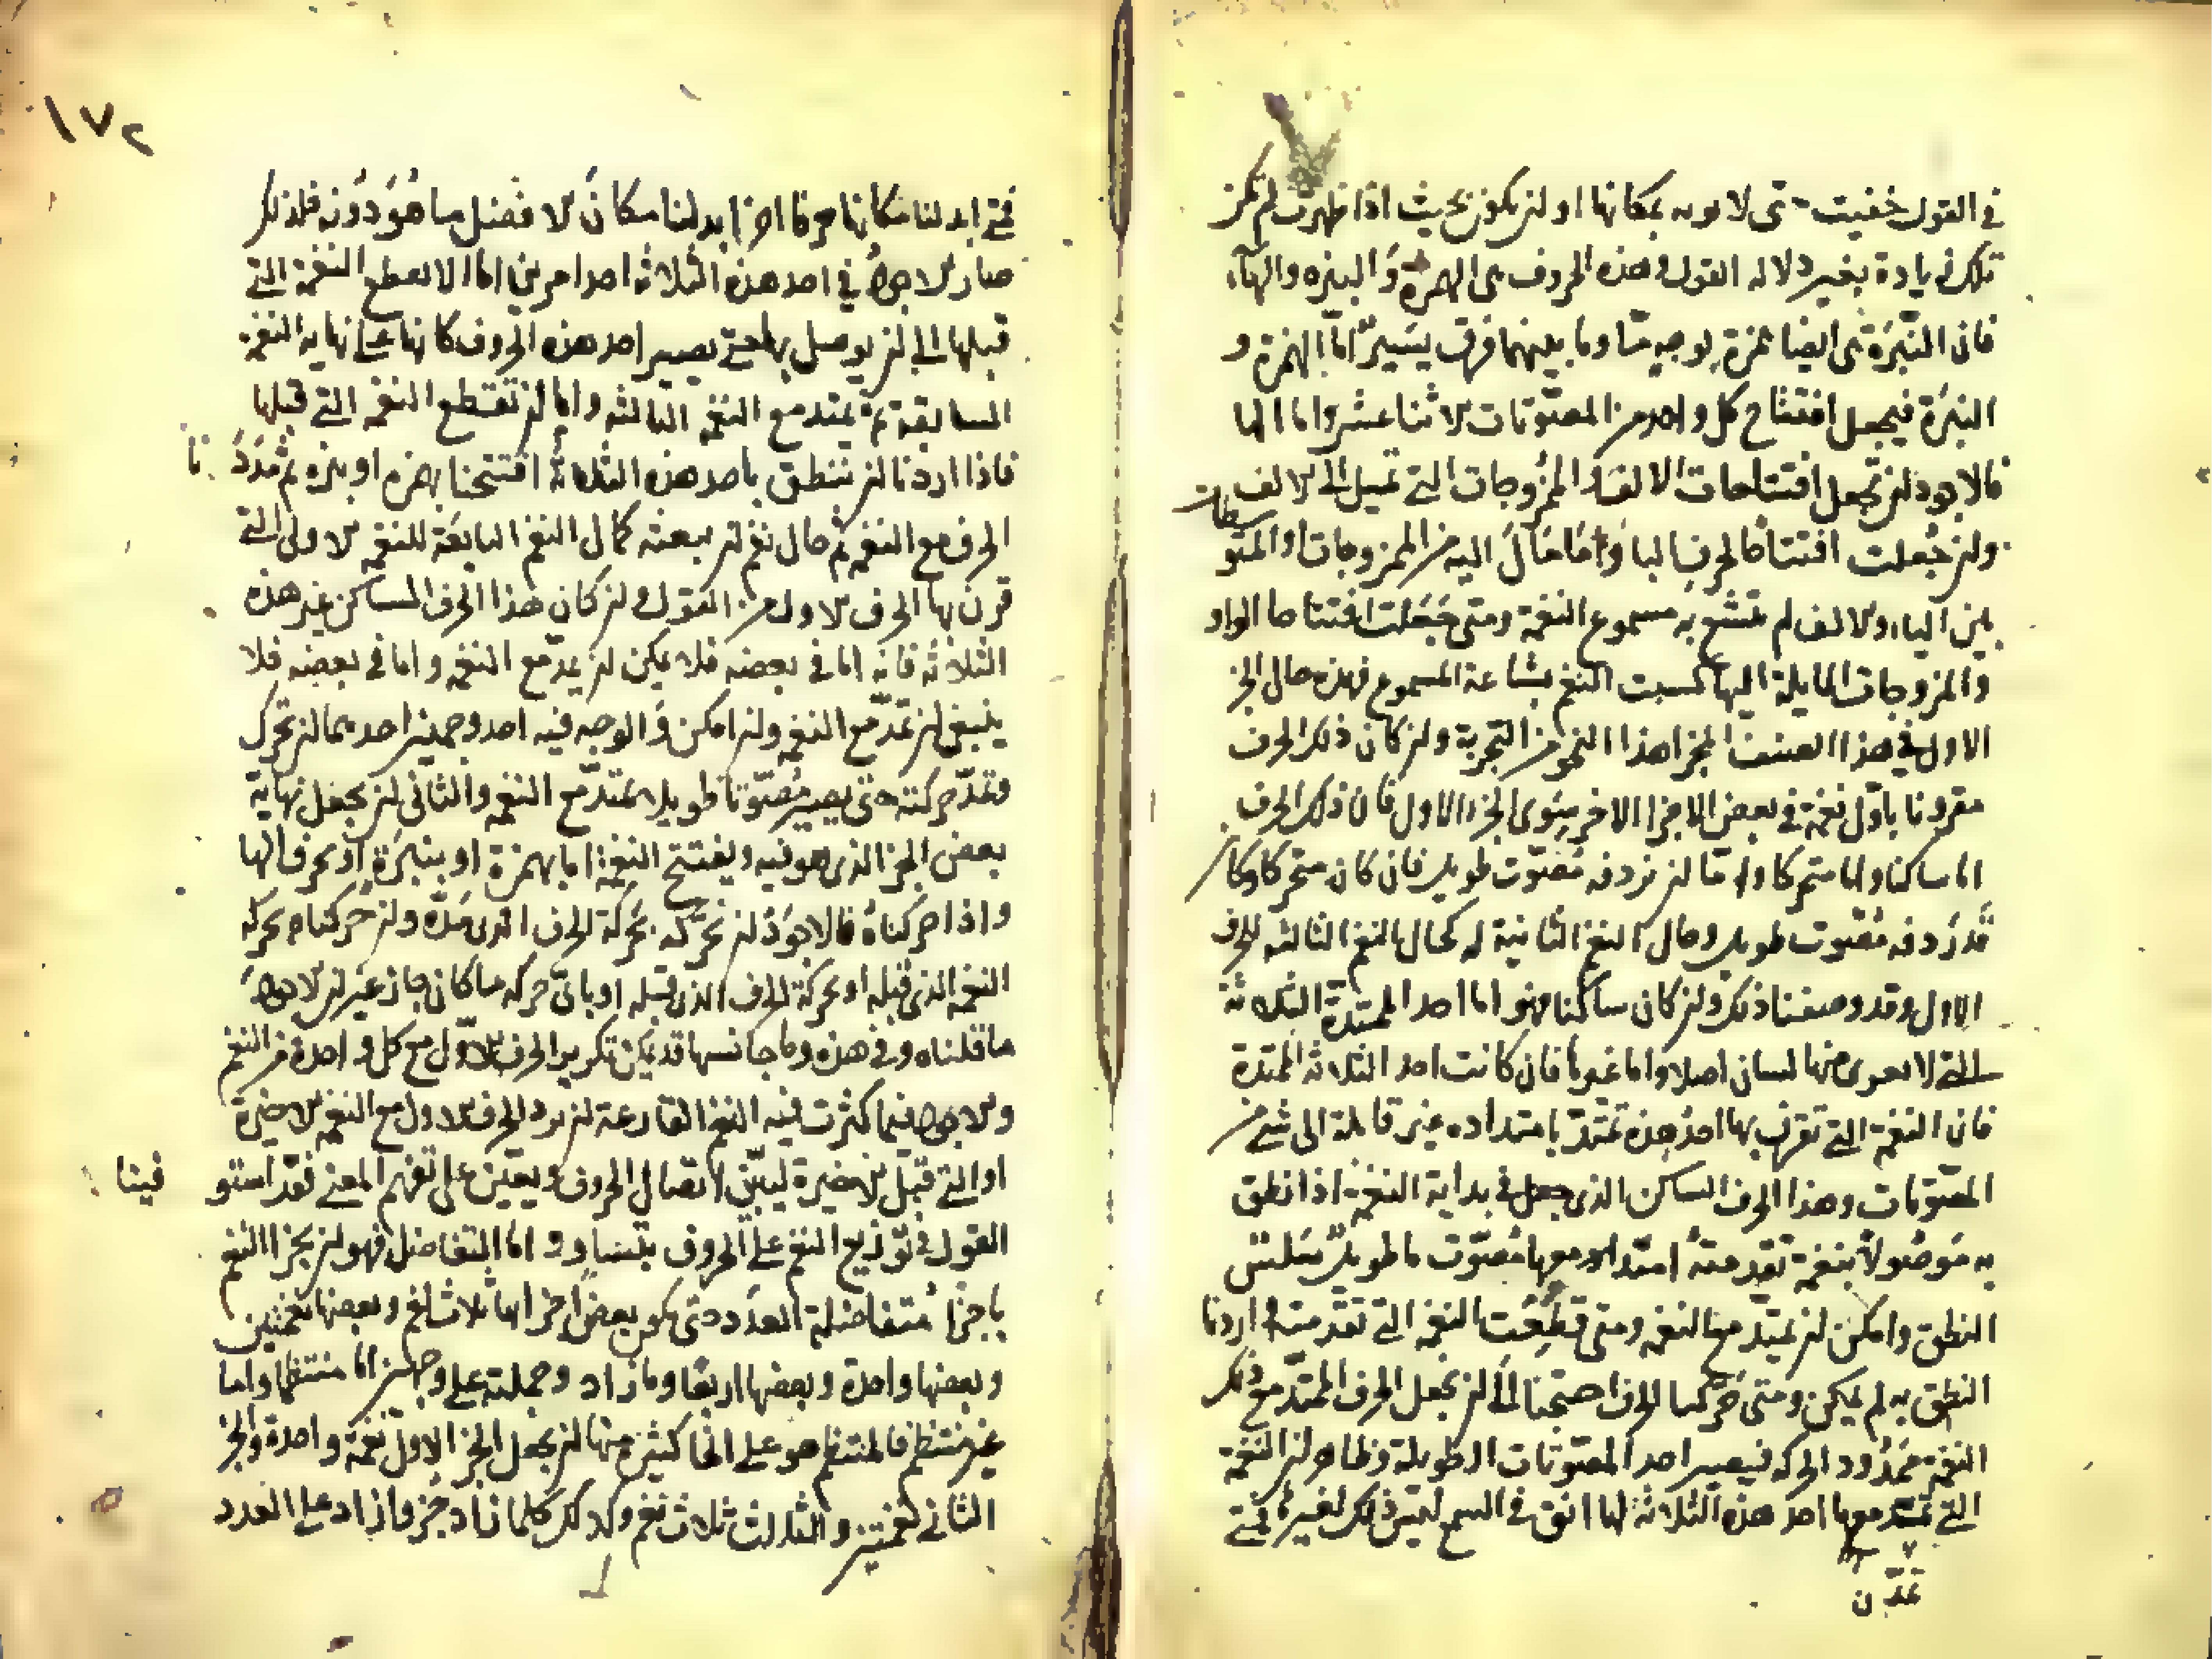 في القول خفيت حتى لا يوبه بمكانها او لن يكون بحيث اذا ظهرت لم تكن
تلك زيادة بغير دلالة القول وهذه الحروف هى الهمزة والنبره والهآء
فان النبرة هى ايضا همزة بوجه مّا وما بينهما فرق يسير امّا الهمزة و
النبرة فيجعل افتتاح كل واحد من المصوتات الاثنا عشر واما الها
فالاجود لن تجعل افتتاحات الالفات الممزوجات التي تميل الى الالف
ولن جعلت افتتاحا لحرف اليا وما مال اليه من الممزوجات والمتوسطات
بين الياء والالف لم تبشع به مسموع النغمة ومتى جعلت افتتاحا الواو
والمزوجات المايلة اليها اكسبت النغم بشاعة المسموع فهذه حال الجز
الاول في هذا الصنف المجزا هذا النحو من التجزية ولن كان ذلك الحرف
مقرونا باول نغمة في بعض الاجزا الاخر سوى الجز الاول فان ذلك الحرف
اما ساكنا واما متحركا واما لن نردفه مصوت طويل فان كان متحركا وكا
قد ردفه مصوت طويل وحال النغم الثانية له كحال النغم الثالثه للحرف
الاول وقد وصفنا ذلك ولن كان ساكنا فهو اما احد الممتدة الثلاثة
التي لا يعرى منها لسان اصلا واما غيرها فان كانت احد الثلاثه الممتدة
فان النغمة التي تقرن بها احد هذه تمتد بامتداده غير قابلة الى شئ من
المصوتات وهذا الحرف الساكن الذى جعل في بداية النغمة اذا نطق
به موصولا بنغمة تقدمته امتداد معها مصوت ما طويل سلس
النطق وامكن لن يمتد مع النغمه ومتى قطعت النغمه التي تقدمته واردنا
النطق به لم يمكن ومتى حركنا الحرف احتجنا الى لن نجعل الحرف الممتد مع ذلك
النغمة ممدود الحركه فيصير احد المصوتات الطويلة وظاهر لن النغمة
التي تمتد معها احد هذه الثلاثة لها انق في السمع ليس ذلك لغيره فمتى
١٧٢
فمتى ابدلنا مكانها حرفا اخر ابدلنا مكان الافضل ما هو دونه فلذلك
صار الاجود في احد هذه الثلاثة احد امرين اما الا نعطع النغمة التي
قبلها الى لن يوصل بها حتى يصير احد هذه الحروف كانها على نهاية النغمه
السابقة ثم يمتد مع النغم التالثه واما لن تقطع النغم التي قبلها
فاذا اردنا لن ننطق باحد هذه الثلاثة افتتحنا بهمزه او بنبره ثم مددنا
الحرف مع النغمه ثم حال نغم لن يبعثه كمال النغم التابعة للنغمه الاولى التي
قرن بها الحرف الاول من القول ولن كان هذا الحرف الساكن غير هذه
الثلاثه فانه اما في بعضه فلا يمكن لن يمدّ مع النغمه واما في بعضه فلا
ينبغي لن تمدّ مع النغمه ولن امكن والوجه فيه احد وجهين احدهما لن تحرك
وتمدّ حركته حتى يصير مصوتا طويلا يمتدّ مع النغمه والثاني لن يجعل نهاية
بعض الجز الذى هو فيه ويفتتح النغمة اما بهمزة او بنبرة او بحرف الها
واذا حركناه فالاجود لن نحركه بحركة الحرف الذى مدّه ولن حركناه بحركة
النغمه الذى قبله او بحركة الحرف الذى قبله او باى حركه ما كان جاز غير لن الاجود
ما قلناه وفي هذه وما جانسها قد يمكن تكرير الحرف الاول مع كل واحدة من النغم
والاجود فيما كثرت فيه النغم الفارعة لن يرد الحرف الاول مع النغم الاخيرة
او التي قبل الاخيرة ليبين اتصال الحروف ويعين على تفهم المعنى فقد استوفينا
القول في توزيع النغم على الحروف بتساوٍ واما المتفاضل فهو لن يجزا النغم
باجزا متفاضلة العدد حتى يكون بعض اجزائها ثلاث نغم وبعضها نغمتين
وبعضها واحدة وبعضها اربعا وما زاد وجملته على وجهين اما منتظما واما
غير منتظم فالمنتظم هو على انحا كثيرة منها لن يجعل الجز الاول نغمة واحدة والجز
الثاني نغمتين والثالث ثلاث نغم وكذلك كلما زاد جزوا زاد على العدد